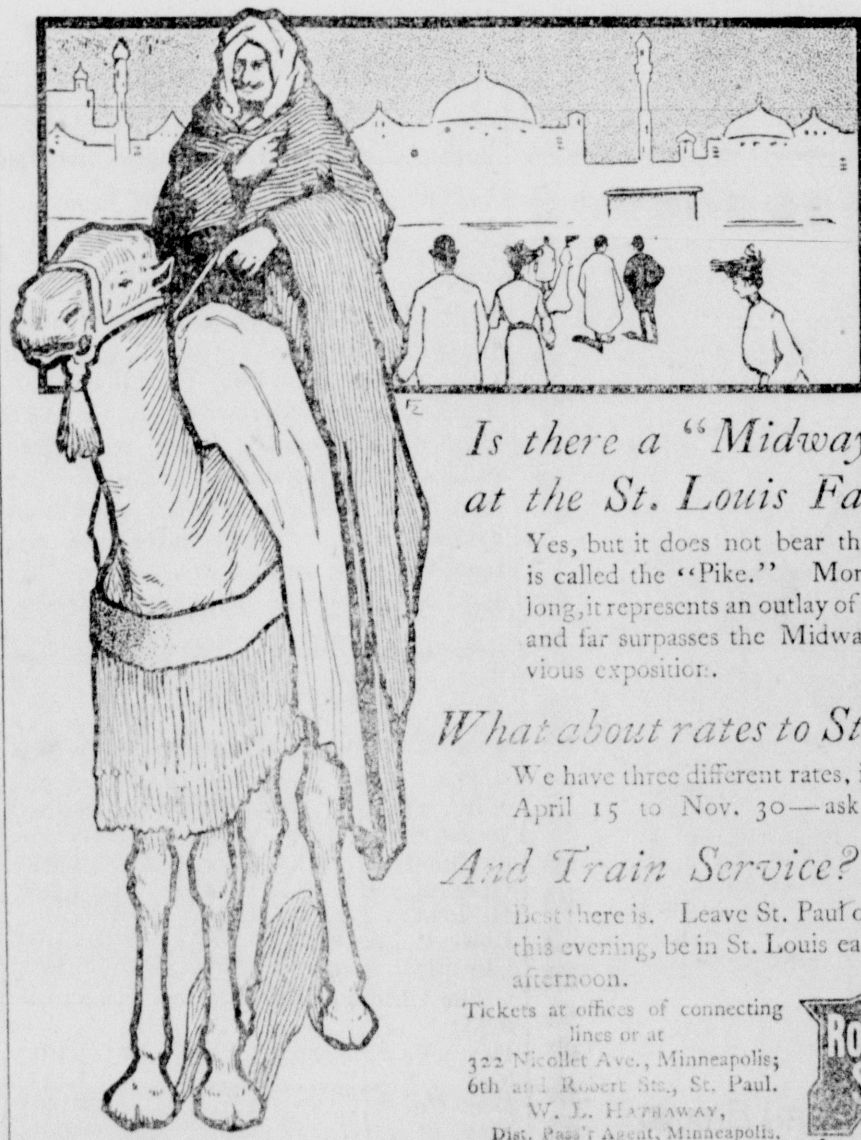 Is there a “Midway
at the St. Louis Fa
Yes, but it does not bear th
is called the “Pike.” Mor
long, it represents an outlay of
and far surpasses the Midwa
vious exposition.
What about rates to St
We have three different rates, i
April 15 to Nov. 30—ask
And Train Service?
Best there is. Leave St. Paul o
this evening, be in St. Louis ea
afternoon.
Tickets at offices of connecting
lines or at
322 Nicollet Ave., Minneapolis;
6th and Robert Sts., St. Paul.
W. L. HATHAWAY,
Dist. Pass'r Agent, Minneapolis.
Ro